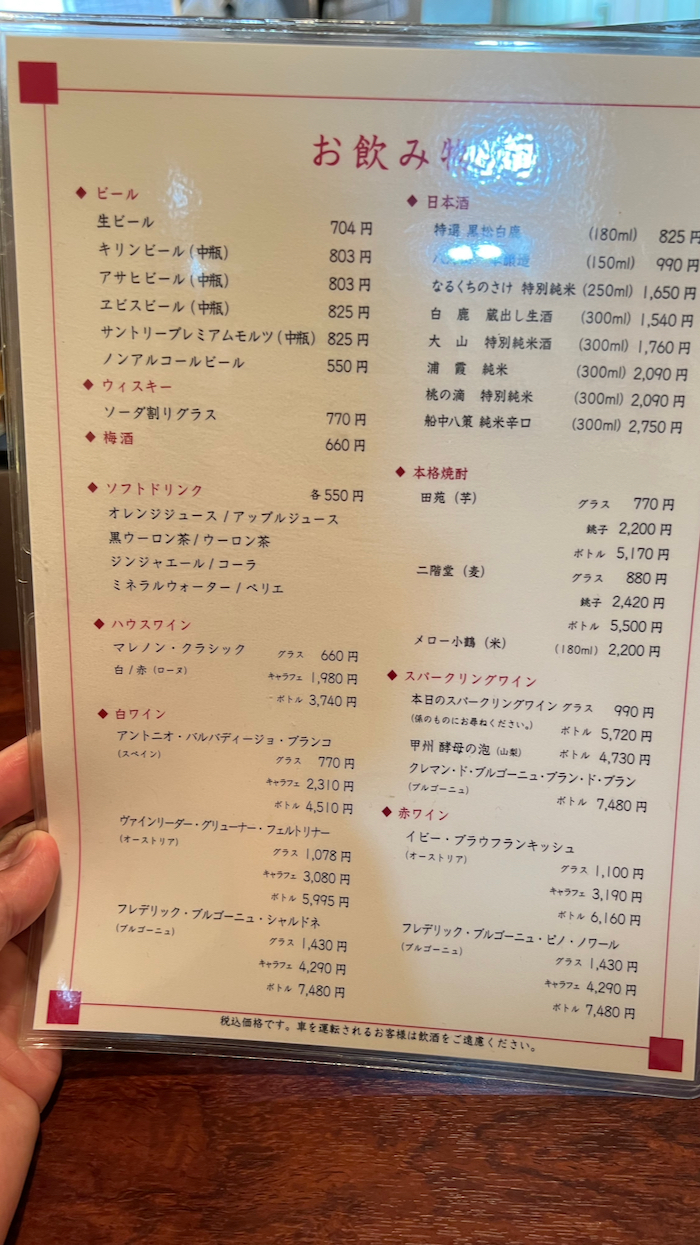 お飲み物
◆ ビール
生ビール 704円
キリンビール（中瓶） 803円
アサヒビール（中瓶） 803円
ヱビスビール（中瓶） 825円
サントリープレミアムモルツ（中瓶） 825円
ノンアルコールビール 550円
◆ ウィスキー
ソーダ割りグラス 770円
◆ 梅酒 660円
◆ ソフトドリンク 各550円
オレンジジュース / アップルジュース
黒ウーロン茶 / ウーロン茶
ジンジャエール / コーラ
ミネラルウォーター / ペリエ
◆ ハウスワイン
マレノン・クラシック グラス 660円
白 / 赤（ローヌ） キャラフェ 1,980円
ボトル 3,740円
◆ 白ワイン
アントニオ・バルバディージョ・ブランコ
（スペイン） グラス 770円
キャラフェ 2,310円
ボトル 4,510円
ヴァインリーダー・グリューナー・フェルトリナー
（オーストリア） グラス 1,078円
キャラフェ 3,080円
ボトル 5,995円
フレデリック・ブルゴーニュ・シャルドネ
（ブルゴーニュ） グラス 1,430円
キャラフェ 4,290円
ボトル 7,480円
◆ 日本酒
特選 黒松白鹿 (180ml) 825円
(150ml) 990円
なるくちのさけ 特別純米 (250ml) 1,650円
白 鹿 蔵出し生酒 (300ml) 1,540円
大 山 特別純米酒 (300ml) 1,760円
浦 霞 純米 (300ml) 2,090円
桃の滴 特別純米 (300ml) 2,090円
船中八策 純米辛口 (300ml) 2,750円
◆ 本格焼酎
田苑（芋） グラス 770円
銚子 2,200円
ボトル 5,170円
二階堂（麦） グラス 880円
銚子 2,420円
ボトル 5,500円
メロー小鶴（米） (180ml) 2,200円
◆ スパークリングワイン
本日のスパークリングワイン グラス 990円
（係のものにお尋ねください。） ボトル 5,720円
甲州 酵母の泡（山梨） ボトル 4,730円
クレマン・ド・ブルゴーニュ・ブラン・ド・ブラン
（ブルゴーニュ） ボトル 7,480円
◆ 赤ワイン
イビー・ブラウフランキッシュ
（オーストリア） グラス 1,100円
キャラフェ 3,190円
ボトル 6,160円
フレデリック・ブルゴーニュ・ピノ・ノワール
（ブルゴーニュ） グラス 1,430円
キャラフェ 4,290円
ボトル 7,480円
税込価格です。車を運転されるお客様は飲酒をご遠慮ください。